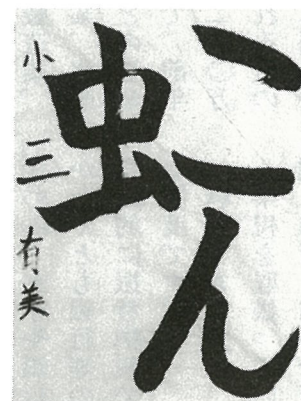 こん
虫
小三 有美